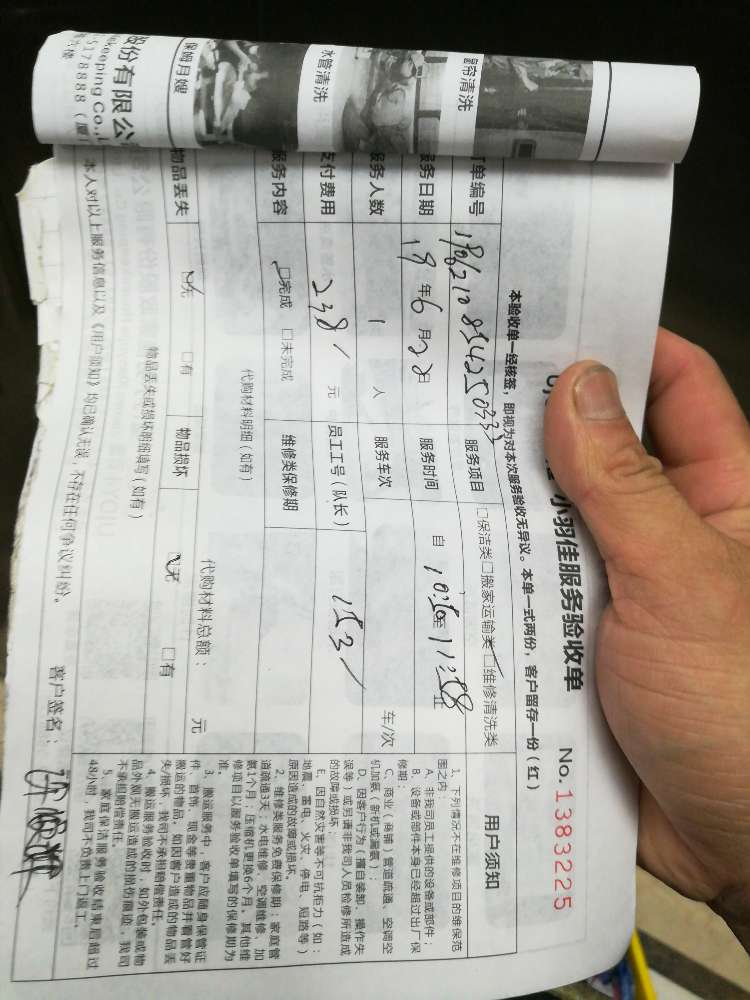 股份有限公
ekeeping Co.,L
5178888（厦
保姆月嫂
水管清洗
窗帘清洗
小羽佳服务验收单
No. 1383225
本验收单一经核签，即视为对本次服务验收无异议。本单一式两份，客户留存一份（红）
订单编号
服务项目 □保洁类□搬家运输类□维修清洗类
服务日期 18年6月22日 服务时间 自10:50至11:58止
服务人数 1 人 服务车次 车/次
支付费用 238 元 员工工号（队长） 153
服务内容 □完成 □未完成 维修类保修期
代购材料明细（如有） 代购材料总额： 元
物品丢失 □无 □有 物品损坏 □无 □有
物品丢失或损坏明细填写（如有）
本人对以上服务信息以及《用户须知》均已确认无误，不存在任何争议纠纷。
客户签名：
用户须知
1、下列情况不在维修项目的维保范
围之内：
A、非我司员工提供的设备或部件；
B、设备或部件本身已经超过出厂保
修期；
C、商业（商铺）管道疏通、空调空
机加氨、新机或漏氨）；
D、因客户行为（擅自装卸、操作失
误等）或另请非我司人员检修所造成
的故障或损坏；
E、因自然灾害等不可抗拒力（如：
地震、雷电、火灾、停电、短路等）
原因造成的故障或损坏。
2、维修类服务免费保修期：家庭管
道疏通3天；水电维修、空调维修、加
氨1个月；压缩机更换6个月。其他维
修项目以服务验收单填写的保修期为
准。
3、搬运服务中，客户应随身保管证
件、首饰、现金等贵重物品并看管好
搬运的物品，如因客户造成的物品丢
失/损坏，我司不承担赔偿责任。
4、搬运服务验收时，如外包装或物
品外观无搬运造成的损伤痕迹，我司
不承担赔偿责任。
5、家庭保洁服务验收结束后超过
48小时，我司不负责上门返工。